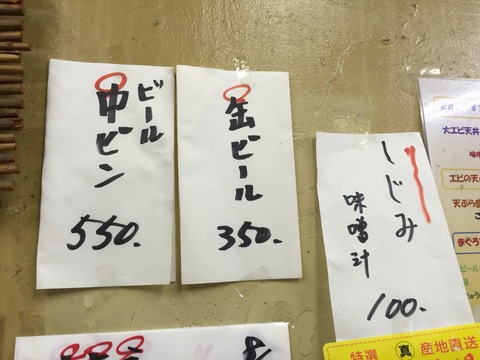 ビール
中ビン
550.
缶ビール
350.
しじみ
味噌汁
100.
大エビ天丼
エビの天
天ぷら盛
まぐろ
ビール
特選
真
産地直送